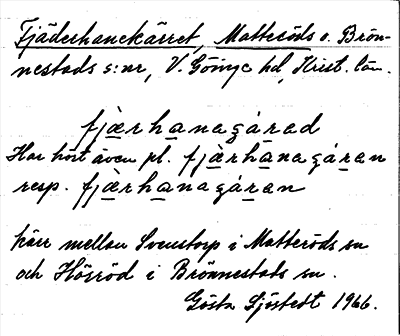 Fjäderhanekärret, Matteröds o. Brön-
nestads s:nr, V. Göinge hd, Krist. län.
fjàrhanagárad
Har hört även pl. fjàrhanagáran
resp. fjàrhanagáran
kärr mellan Svenstorp i Matteröds sn
och Hössröd i Brönnestads sn.
Gösta Sjöstedt 1966.